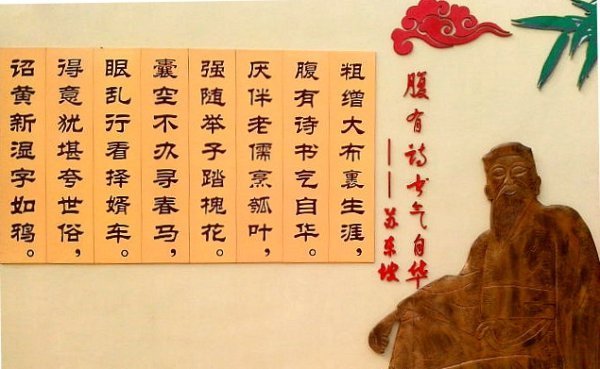 腹有诗书气自华
——苏东坡
粗缯大布裹生涯，
腹有诗书气自华。
厌伴老儒烹瓠叶，
强随举子踏槐花。
囊空不办寻春马，
眼乱行看择婿车。
得意犹堪夸世俗，
诏黄新湿字如鸦。